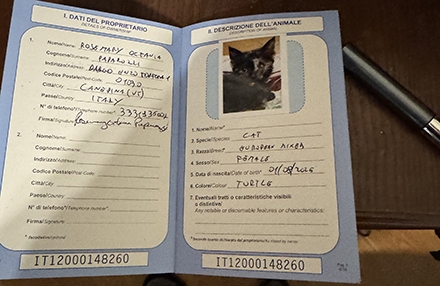 I. DATI DEL PROPRIETARIO
DETAILS OF OWNERSHIP
1.
Nome/Name: ROSEMARY OCEANIA
Cognome/Surname:
Indirizzo/Address:
Codice Postale/Post-Code: 01030
Città/City:
Paese/Country: ITALY
N° di telefono*/Telephone number*
Firma/Signature
2.
Nome/Name:
Cognome/Surname:
Indirizzo/Address:
Codice Postale/Post-Code:
Città/City:
Paese/Country:
N° di telefono*/Telephone number*
Firma/Signature:
* facoltativo/optional
IT12000148260
II. DESCRIZIONE DELL'ANIMALE
DESCRIPTION OF ANIMAL
1. Nome/Name*
2. Specie/Species: CAT
3. Razza/Breed* EUROPEAN MIXED
4. Sesso/Sex: FEMALE
5. Data di nascita/Date of birth*
6. Colore/Colour TURTLE
7. Eventuali tratti o caratteristiche visibili
o distintivi:
Any notable or discernable features or characteristics:
IT12000148260